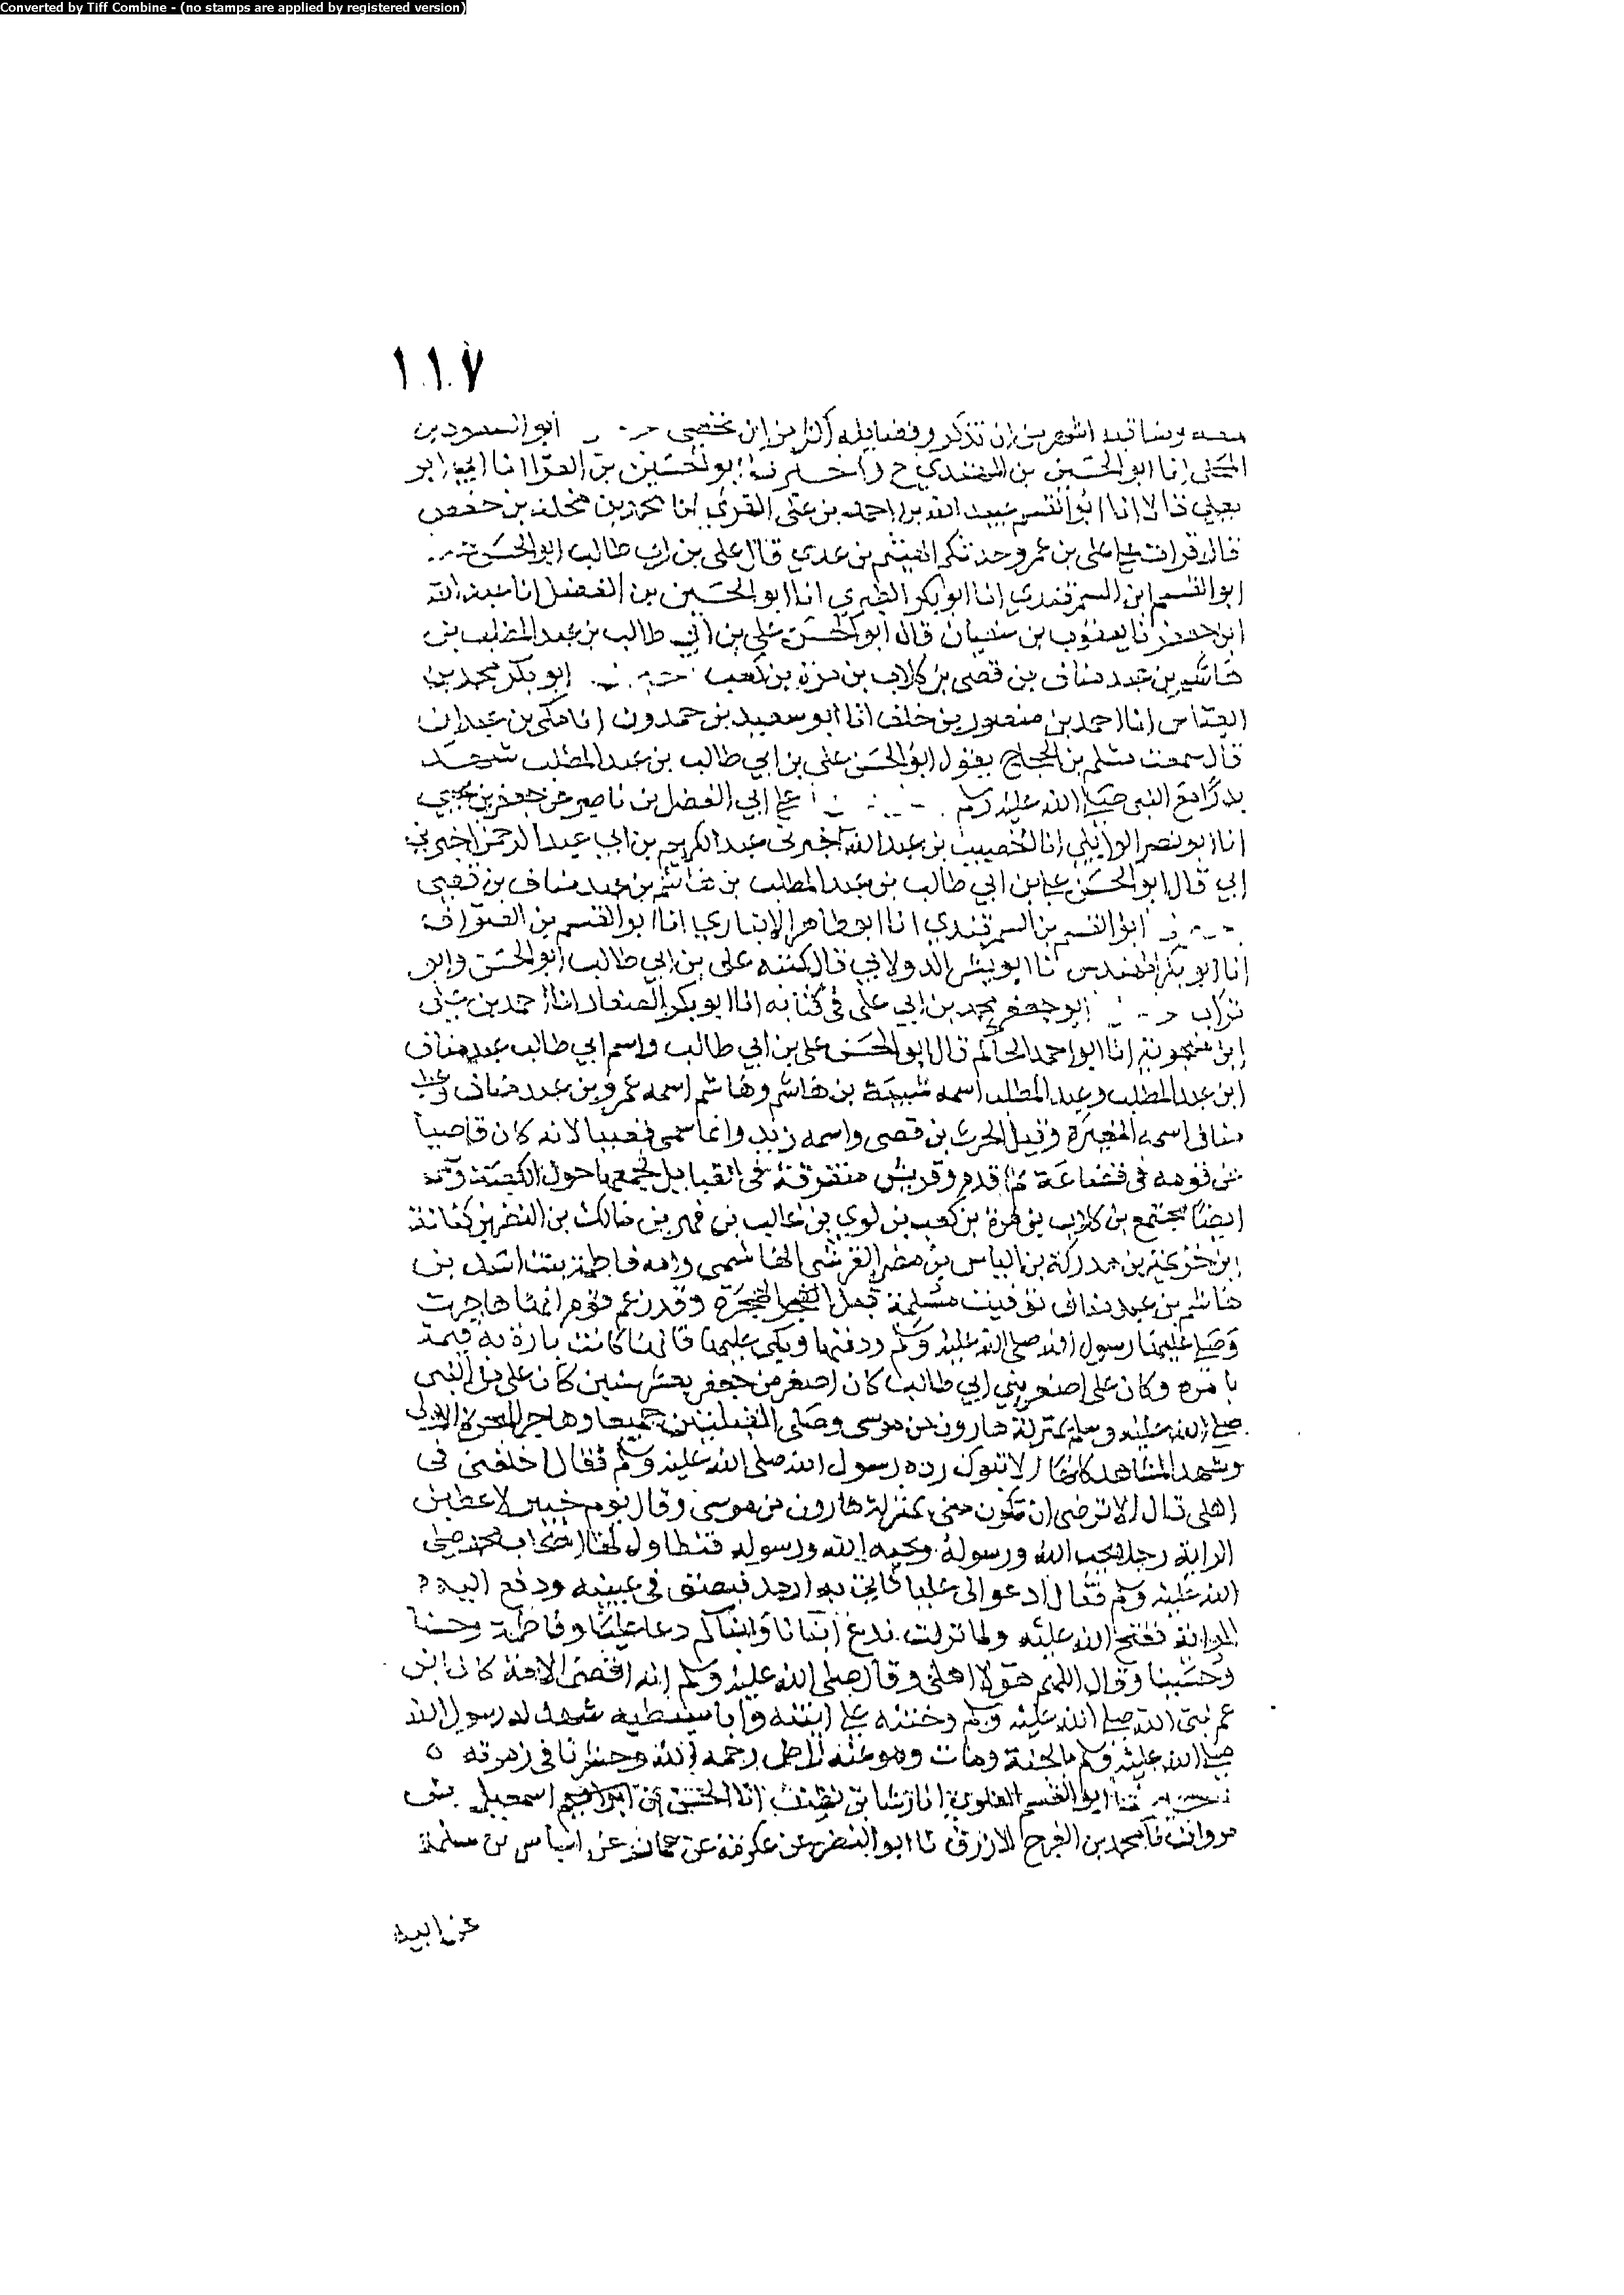 Converted by Tiff Combine - (no stamps are applied by registered version)
١١٧
ومناقبه اشهر من ان تذكر وفضايله اكثر من ان تحصى ابو السعود بن
المجلى انا ابو الحسين بن المهتدي ح واخبرنا ابو الحسين بن الفرا انا ابي ابو
يعلى قالا انا ابو القسم عبيد الله بن احمد بن على المقرئ انا محمد بن مخلد بن حفص
قال قرات على على بن عمرو حدثكم الهيثم بن عدي قال على بن ابي طالب ابو الحسن
ابو القسم ابن السمرقندي انا ابو بكر الطبري انا ابو الحسين بن الفضل انا عبد الله
ابن جعفر نا يعقوب بن سفيان قال ابو الحسن علي بن ابي طالب بن عبد المطلب بن
هاشم بن عبد مناف بن قصى بن كلاب بن مرة بن كعب ابو بكر محمد بن
العباس انا احمد بن منصور بن خلف انا ابو سعيد بن حمدون انا مكى بن عبدان
قال سمعت مسلم بن الحجاج يقول ابو الحسن على بن ابي طالب بن عبد المطلب شهد
بدرا مع النبى صلى الله عليه وسلم على ابي الفضل بن ناصر عن جعفر بن يحيى
انا ابو نصر الوايلي انا الخصيب بن عبد الله اخبرنى عبد الكريم بن ابي عبد الرحمن اخبرني
ابي قال ابو الحسن على بن ابي طالب بن عبد المطلب بن هاشم بن عبد مناف بن قصى
ابو القسم بن السمرقندي انا ابو طاهر الانباري انا ابو القسم بن الصواف
انا ابو بكر المهندس نا ابو بشر الدولابي قال كنية على بن ابي طالب ابو الحسن وابو
تراب ابو جعفر محمد بن ابي على فى كتابه انا ابو بكر الصفار انا احمد بن على
ابن منجويه انا ابو احمد الحاكم قال ابو الحسن على بن ابي طالب واسم ابي طالب عبد مناف
ابن عبد المطلب وعبد المطلب اسمه شيبة بن هاشم وهاشم اسمه عمرو بن عبد مناف وعبد
مناف اسمه المغيرة وقيل الحرث بن قصى واسمه زيد وانما سمى قصيا لانه كان قاصيا
عن قومه فى قضاعة ثم قدم وقريش متفرقة فى القبايل فجمعها حول الكعبة وقد
ايضا مجمع بن كلاب بن مرة بن كعب بن لوي بن غالب بن فهر بن مالك بن النضر بن كنانة
ابن خزيمة بن مدركة بن الياس بن مضر القرشى الهاشمى وامه فاطمة بنت اسد بن
هاشم بن عبد مناف توفيت مسلمة قبل الهجرة وقد زعم قوم انها هاجرت
وصلى عليها رسول الله صلى الله عليه وسلم ودفنها وبكى عليها فانها كانت بارة به قيمة
بامره وكان على اصغر بني ابي طالب كان اصغر من جعفر بعشر سنين كان على من النبى
صلى الله عليه وسلم بمنزلة هارون من موسى وصلى القبلتين جميعا وهاجر الهجرة الاولى
وشهد المشاهد كلها الا تبوك رده رسول الله صلى الله عليه وسلم فقال اخلفنى فى
اهلى قال الا ترضى ان تكون منى بمنزلة هارون من موسى وقال يوم خيبر لاعطين
الراية رجلا يحب الله ورسوله ويحبه الله ورسوله فتطاول لها اصحاب محمد صلى
الله عليه وسلم فقال ادعو الى عليا فاتي به ارمد فبصق فى عينيه ودفع اليه
الراية ففتح الله عليه ولما نزلت ندع ابنانا وابناكم دعا عليا وفاطمة وحسنا
وحسينا وقال اللهم هولا اهلى وقال صلى الله عليه وسلم انه اقضى الامة كان ابن
عم نبى الله صلى الله عليه وسلم وختنه على ابنته وابا سبطيه شهد له رسول الله
صلى الله عليه وسلم بالجنة ومات وهو عنه راض رحمه الله وحشرنا فى زمرته ٥
ابو القسم العلوي انا رشا بن نظيف انا الحسن بن اسمعيل بن
مروان نا محمد بن الفرج الازرق نا ابو النضر عن عكرمة بن عمار عن اياس بن سلمة
عن ابيه